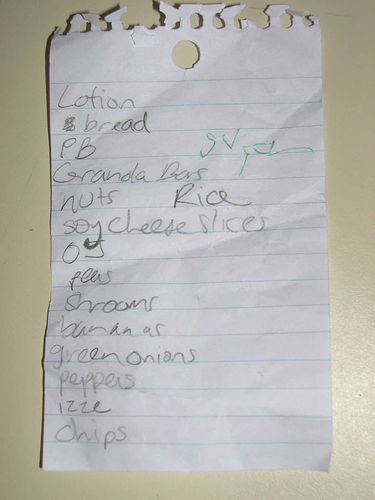 Lotion
bread
PB
Granola Bars
nuts Rice
soy cheese slices
OJ
peas
Shrooms
bananas
green onions
peppers
izze
Chips